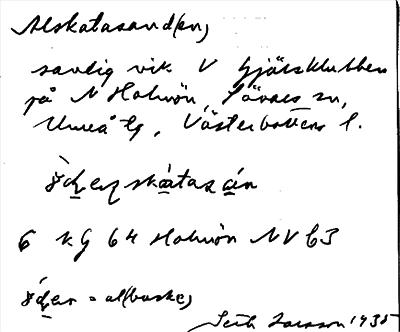 Alskatasand(en)
sandig vik V Gjätsklubben
på N Holmön, Sävars sn,
Umeå lg, Västerbottens l.
6 KG 64 Holmön NV b3
= al(buske)
Seth Larsson 1935